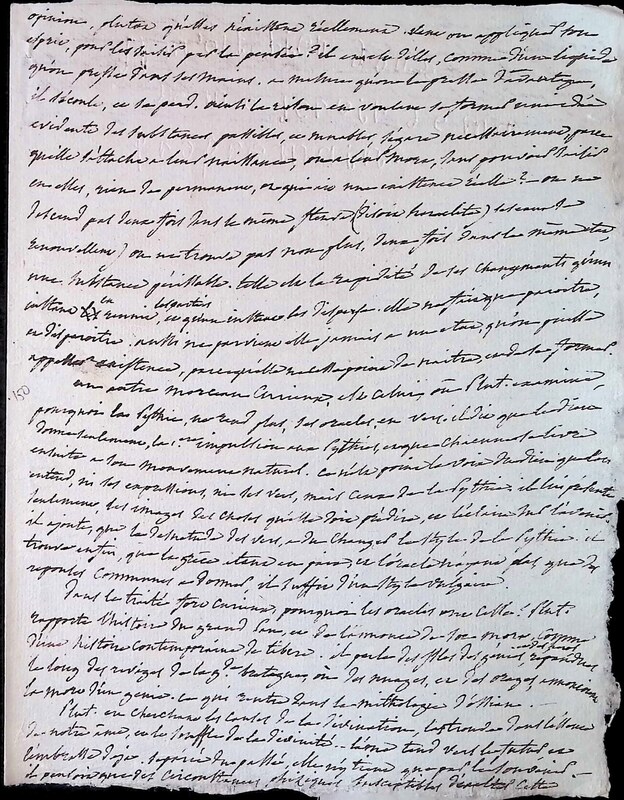 opinion, plutot qu'elles n'existent réellement. veut on appliquer son
esprit, pour les saisir par la pensée? il en est d'elles, comme d'un liquide
qu'on presse dans ses mains. a mesure qu'on le presse davantage,
il s'écoule, et se perd. ainsi la raison en voulant se former une idée
evidente des substances passibles, et muables, s'égare necessairement, parce
qu'elle s'attache a leur naissance, ou a leur mort, sans pouvoir saisir
en elles, rien de permanent, et qui ait une existence réelle? — on ne
descend pas deux fois dans le même fleuve (disoit heraclite)
renouvellent) on ne trouve pas non plus, deux fois dans le même état,
une substance périssable. telle est la rapidité de ses changements qu'un
instant en reunit les parties, et qu'un instant les disperse. elle ne fait que paroitre,
et disparoitre. aussi ne parvient elle jamais a un etat, qu'on puisse
appeller existence, parcequ'elle ne cesse point de naitre, et de se former.
un autre morceau curieux, est celui, où Plut. examine,
pourquoi la Pythie, ne rend plus, ses oracles, en vers. il dit que le dieu
donne seulement, la 1ere impulsion aux Pythies, et que chacune se livre
ensuite a son mouvement naturel. ce n'est point la voix du dieu que l'on
entend, ni ses expressions, ni ses vers, mais ceux de la Pythie. il lui présente
seulement, les images des choses qu'elle doit prédire, et l'éclaire sur l'avenir.
il ajoute, que la des vers, a du changer le style de la Pythie. il
trouve enfin, que la grèce étant en paix, et l'oracle n'ayant plus que des
reponses communes a donner, il suffit d'un style vulgaire.
Dans le traité fort curieux, pourquoi les oracles ont cessé? Plut.
rapporte l'histoire du grand Pan, et de l'annonce de sa mort, comme
d'une histoire contemporaine de tibere. il parle des isles des génies, répandues
le long des rivages de la gde bretagne, où des nuages, et des orages annoncent
la mort d'un genie. ce qui rentre dans la mithologie d'Ossian.
Plut. en cherchant les causes de la divination, les trouve dans
de notre âme, et le souffle de la divinité — l'âme tend vers le futur et
l'embrasse déja, separée du passé, elle n'y tient que par le souvenir —
il pense que des circonstances, physiques, susceptibles